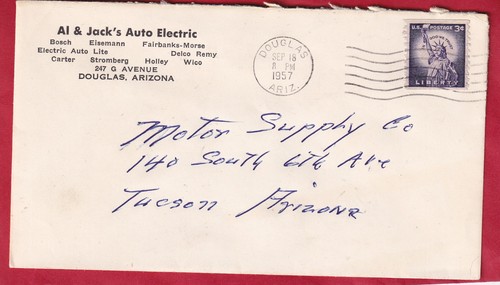 Al & Jack's Auto Electric
Bosch Eisemann Fairbanks-Morse
Electric Auto Lite Delco Remy
Carter Stromberg Holley Wico
247 G AVENUE
DOUGLAS, ARIZONA
DOUGLAS
SEP 18
PM
1957
ARIZ.
U.S. POSTAGE 3¢
IN GOD WE TRUST
LIBERTY
Motor Supply Co
140 South 6th Ave
Tucson Arizona